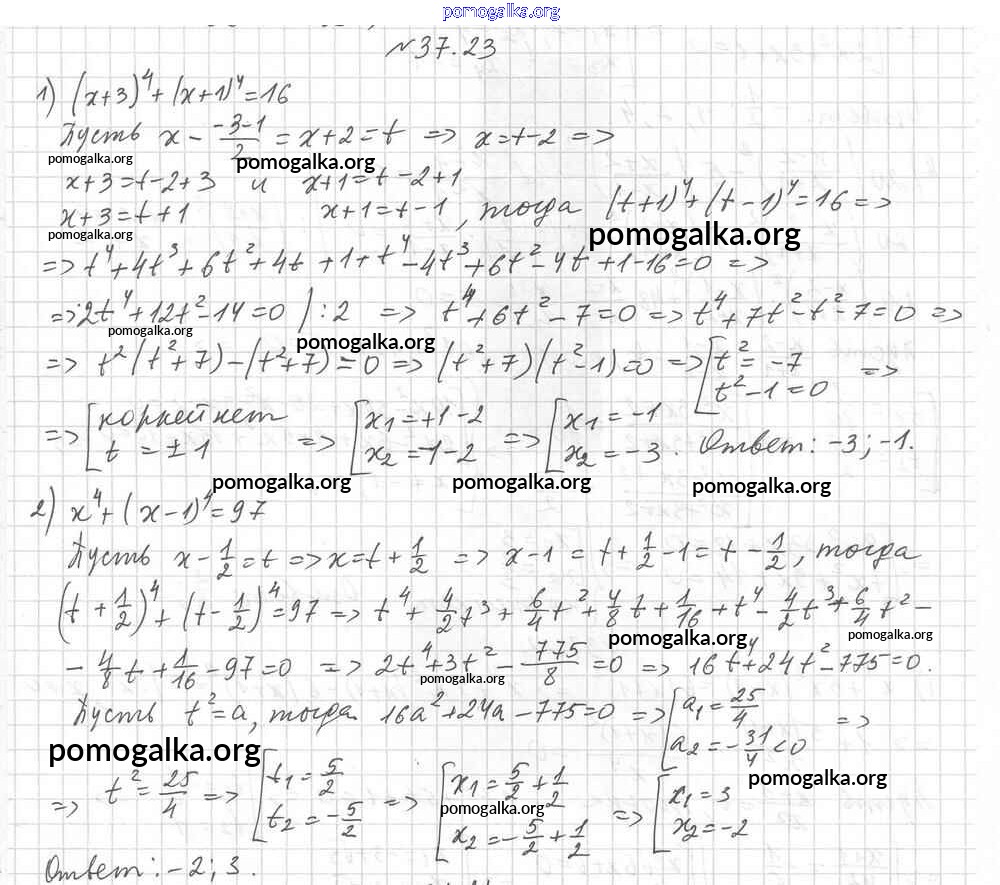 pomogalka.org
№37.23
1) (x+3)⁴+(x+1)⁴=16
Пусть x - (-3-1)/2 = x+2 = t => x=t-2 =>
pomogalka.org pomogalka.org
x+3=t-2+3 и x+1=t-2+1
x+3=t+1 x+1=t-1, тогда (t+1)⁴+(t-1)⁴=16 =>
pomogalka.org pomogalka.org
=> t⁴+4t³+6t²+4t+1+t⁴-4t³+6t²-4t+1-16=0 =>
=> 2t⁴+12t²-14=0 /:2 => t⁴+6t²-7=0 => t⁴+7t²-t²-7=0 =>
pomogalka.org pomogalka.org
=> t²(t²+7)-(t²+7)=0 => (t²+7)(t²-1)=0 => [t²=-7 =>
t²-1=0
=> [корней нет => [x₁=+1-2 => [x₁=-1
t=±1 x₂=-1-2 x₂=-3. Ответ: -3; -1.
pomogalka.org pomogalka.org pomogalka.org
2) x⁴+(x-1)⁴=97
Пусть x-1/2=t => x=t+1/2 => x-1=t+1/2-1=t-1/2, тогда
(t+1/2)⁴+(t-1/2)⁴=97 => t⁴+4/2t³+6/4t²+4/8t+1/16+t⁴-4/2t³+6/4t²-
pomogalka.org pomogalka.org
-4/8t+1/16-97=0 => 2t⁴+3t²-775/8=0 => 16t⁴+24t²-775=0.
pomogalka.org
Пусть t²=a, тогда 16a²+24a-775=0 => [a₁=25/4 =>
a₂=-31/4<0
pomogalka.org pomogalka.org
=> t²=25/4 => [t₁=5/2 => [x₁=5/2+1/2 => [x₁=3
pomogalka.org
t₂=-5/2 x₂=-5/2+1/2 x₂=-2
Ответ: -2; 3.